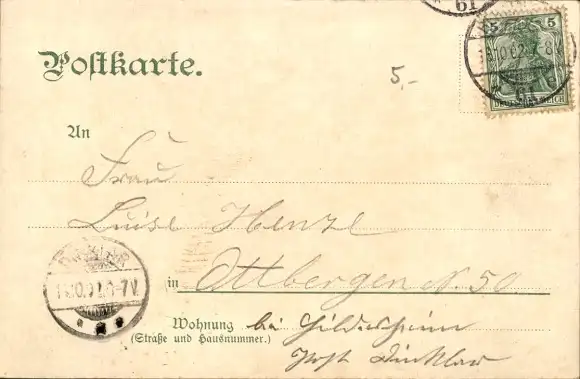 61
5 5
10.02.7-8V.
61
DEUTSCHES REICH
Postkarte.
5,-
An
Frau
Luise Henze
in Ottbergen N. 50
10.02.6-7V.
Wohnung bei Hildesheim
(Straße und Hausnummer.)
Post Dinklar